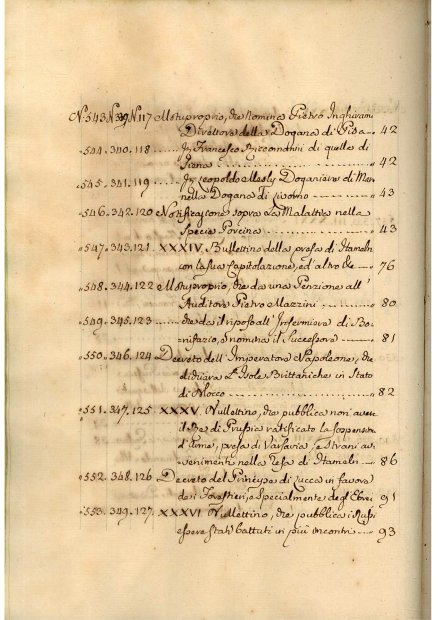 N. 543 N. 339 N. 117 Motuproprio, che nomina Pietro Inghirami
Direttore della Dogana di Pisa 42
„ 544. 340. 118 ...... In Francesco Piccolomini di quella di
Siena ...... „ 42
„ 545. 341. 119 ...... In Leopoldo Doganiere di
nella Dogana di Livorno ...... „ 43
„ 546. 342. 120 Notificazione sopra la Malattia nella
Specie Porcina ...... „ 43
„ 547. 343. 121 XXXIV. Bullettino della presa di Hameln
con la sua Capitolazione, ed altro &c „ 76
„ 548. 344. 122 Motuproprio, che da una Penzione all'
Auditore Pietro Mazzini ...... „ 80
„ 549. 345. 123 ...... che da il riposo all' Infermiere di Bo-
nifazio, e nomina il Successore ...... „ 81
„ 550. 346. 124 Decreto dell' Imperatore Napoleone, che
dichiara l'Isole Brittaniche in Stato
di Blocco ...... „ 82
„ 551. 347. 125 XXXV. Bullettino, che pubblica non aver
il Re di Prussia ratificato la sospensione
d'Arme, presa di Varsavia, e Strani av-
venimenti nella resa di Hameln „ 86
„ 552. 348. 126 Decreto del Principe di Lucca in favore
dei Forestieri, e Specialmente degl' Ebrei 91
„ 553. 349. 127 XXXVI Bullettino, che pubblica i Russi
essere stati battuti in più incontri „ 93